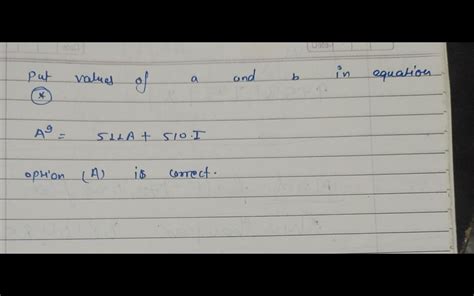 Put values of a and b in equation
*
A⁹ = 511A + 510.I
option (A) is correct.